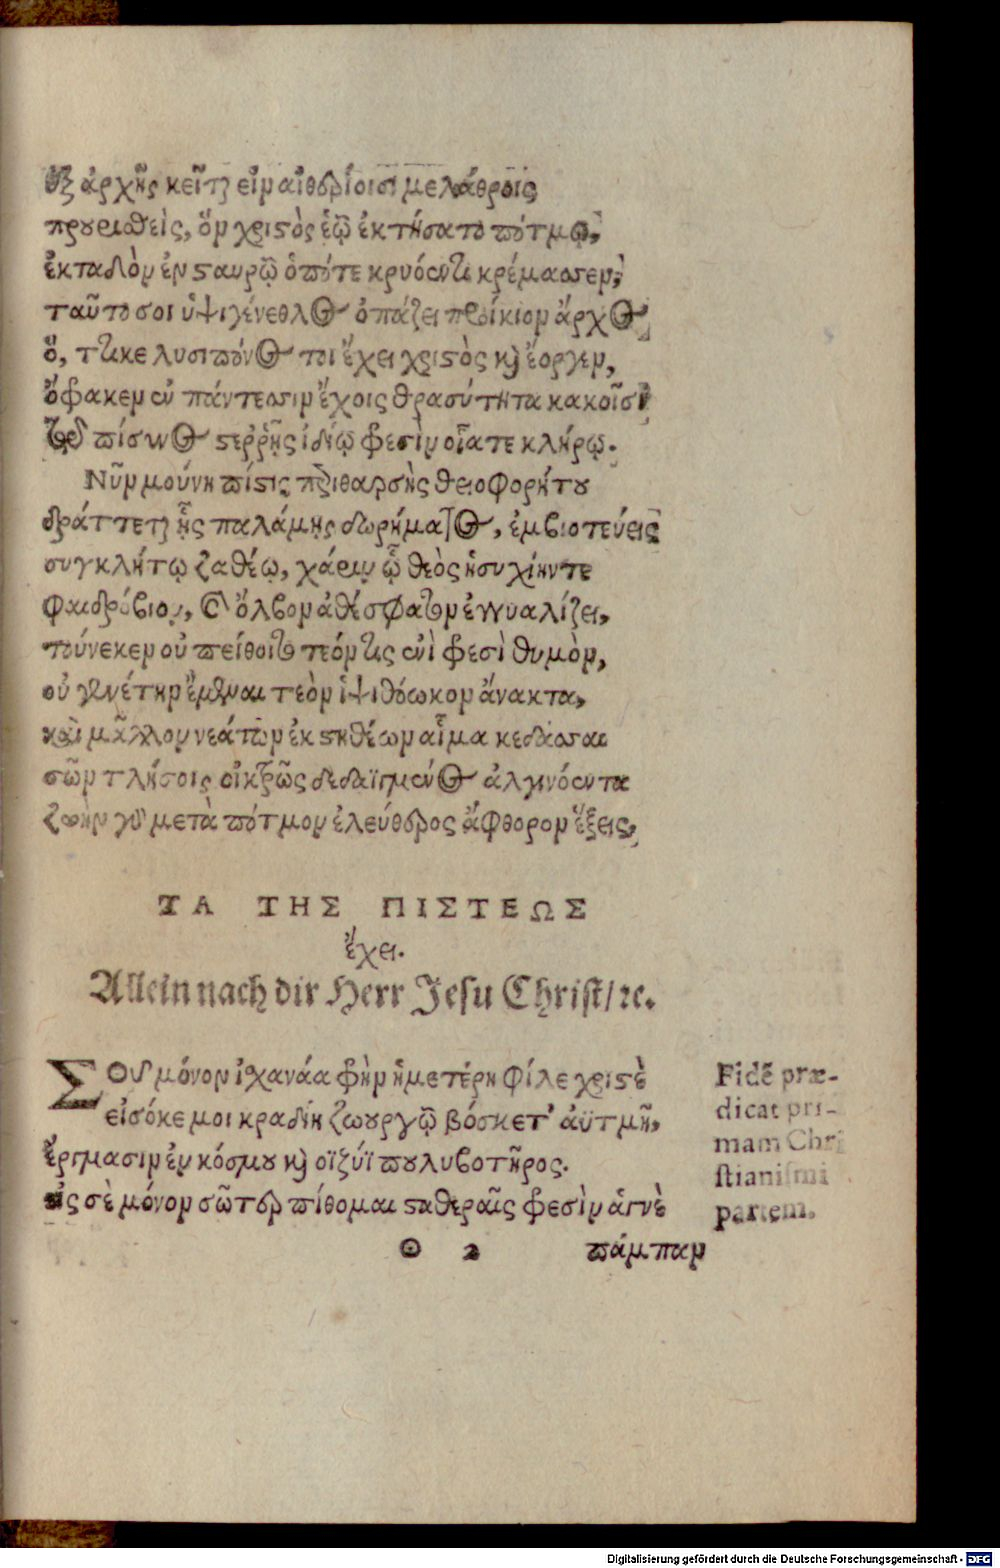 ἐξ ἀρχῆς κεῖται εἰν αἰθερίοισι μελάθροις
πρ‌ουριθεὶς, ὃν χριστὸς ἑῷ ἐκτήσατο πότμῳ,
ἐκταδὸν ἐν σταυρῷ ὁπότε κρυόεντι κρέμασσεν,
ταῦτο σοι ὑψιγένεθλος ὀπάζει προίκιον ἄρχος
ὅ, τι κε λυσιπόνος τοι ἔχει χριστὸς καὶ ἔοργεν,
ὄφρα κεν ἐν πάντεσσιν ἔχοις θρασύτητα κακοῖσι
πίσυνος στερρῆς ἰδίῳ φρεσὶν οἷά τε κλήρῳ.
Νῦν μούνη πίστις περιθαρσὴς θειοφορήτου
δράττεται ἧς παλάμης δωρήματος, ἐμβιοτεύεις
συγκλήτῳ ζαθέῳ, χάριν ᾧ θεὸς ἡσυχίην τε
φαιδρόβιον, καὶ ὄλβον ἀθέσφατον ἐγγυαλίζει,
τούνεκεν οὐ πείθοιτο τεόν τις ἐνὶ φρεσὶ θυμὸν,
οὐ γενέτην ἔμεναι τεὸν ὑψιθόωκον ἄνακτα,
καὶ μᾶλλον νεάτων ἐκ στηθέων αἷμα κεδάσσαι
σῶν τλήσοις οἰκτρῶς δεδαϊγμένος ἀλγινόεντα
ζωὴν γὰρ μετὰ πότμον ἐλεύθερος ἄφθορον ἕξεις,
ΤΑ ΤΗΣ ΠΙΣΤΕΩΣ
ἔχει.
Allein nach dir Herr Jesu Christ/ꝛc.
ΣΟῦ μόνον ἰχανάα φρὴν ἡμετέρη φίλε χριστὲ
εἰσόκε μοι κραδίη ζωουργῷ βόσκετ' ἀϋτμῇ,
ἕρμασιν ἐν κόσμου καὶ οἰζύϊ πουλυβοτῆρος.
εἰς σὲ μόνον σῶτερ πίθομαι σταθεραῖς φρεσὶν ἁγνὲ
Fidẽ præ-
dicat pri-
mam Chri
stianismi
partem.
Θ 2 πάμπαν
Digitalisierung gefördert durch die Deutsche Forschungsgemeinschaft - DFG